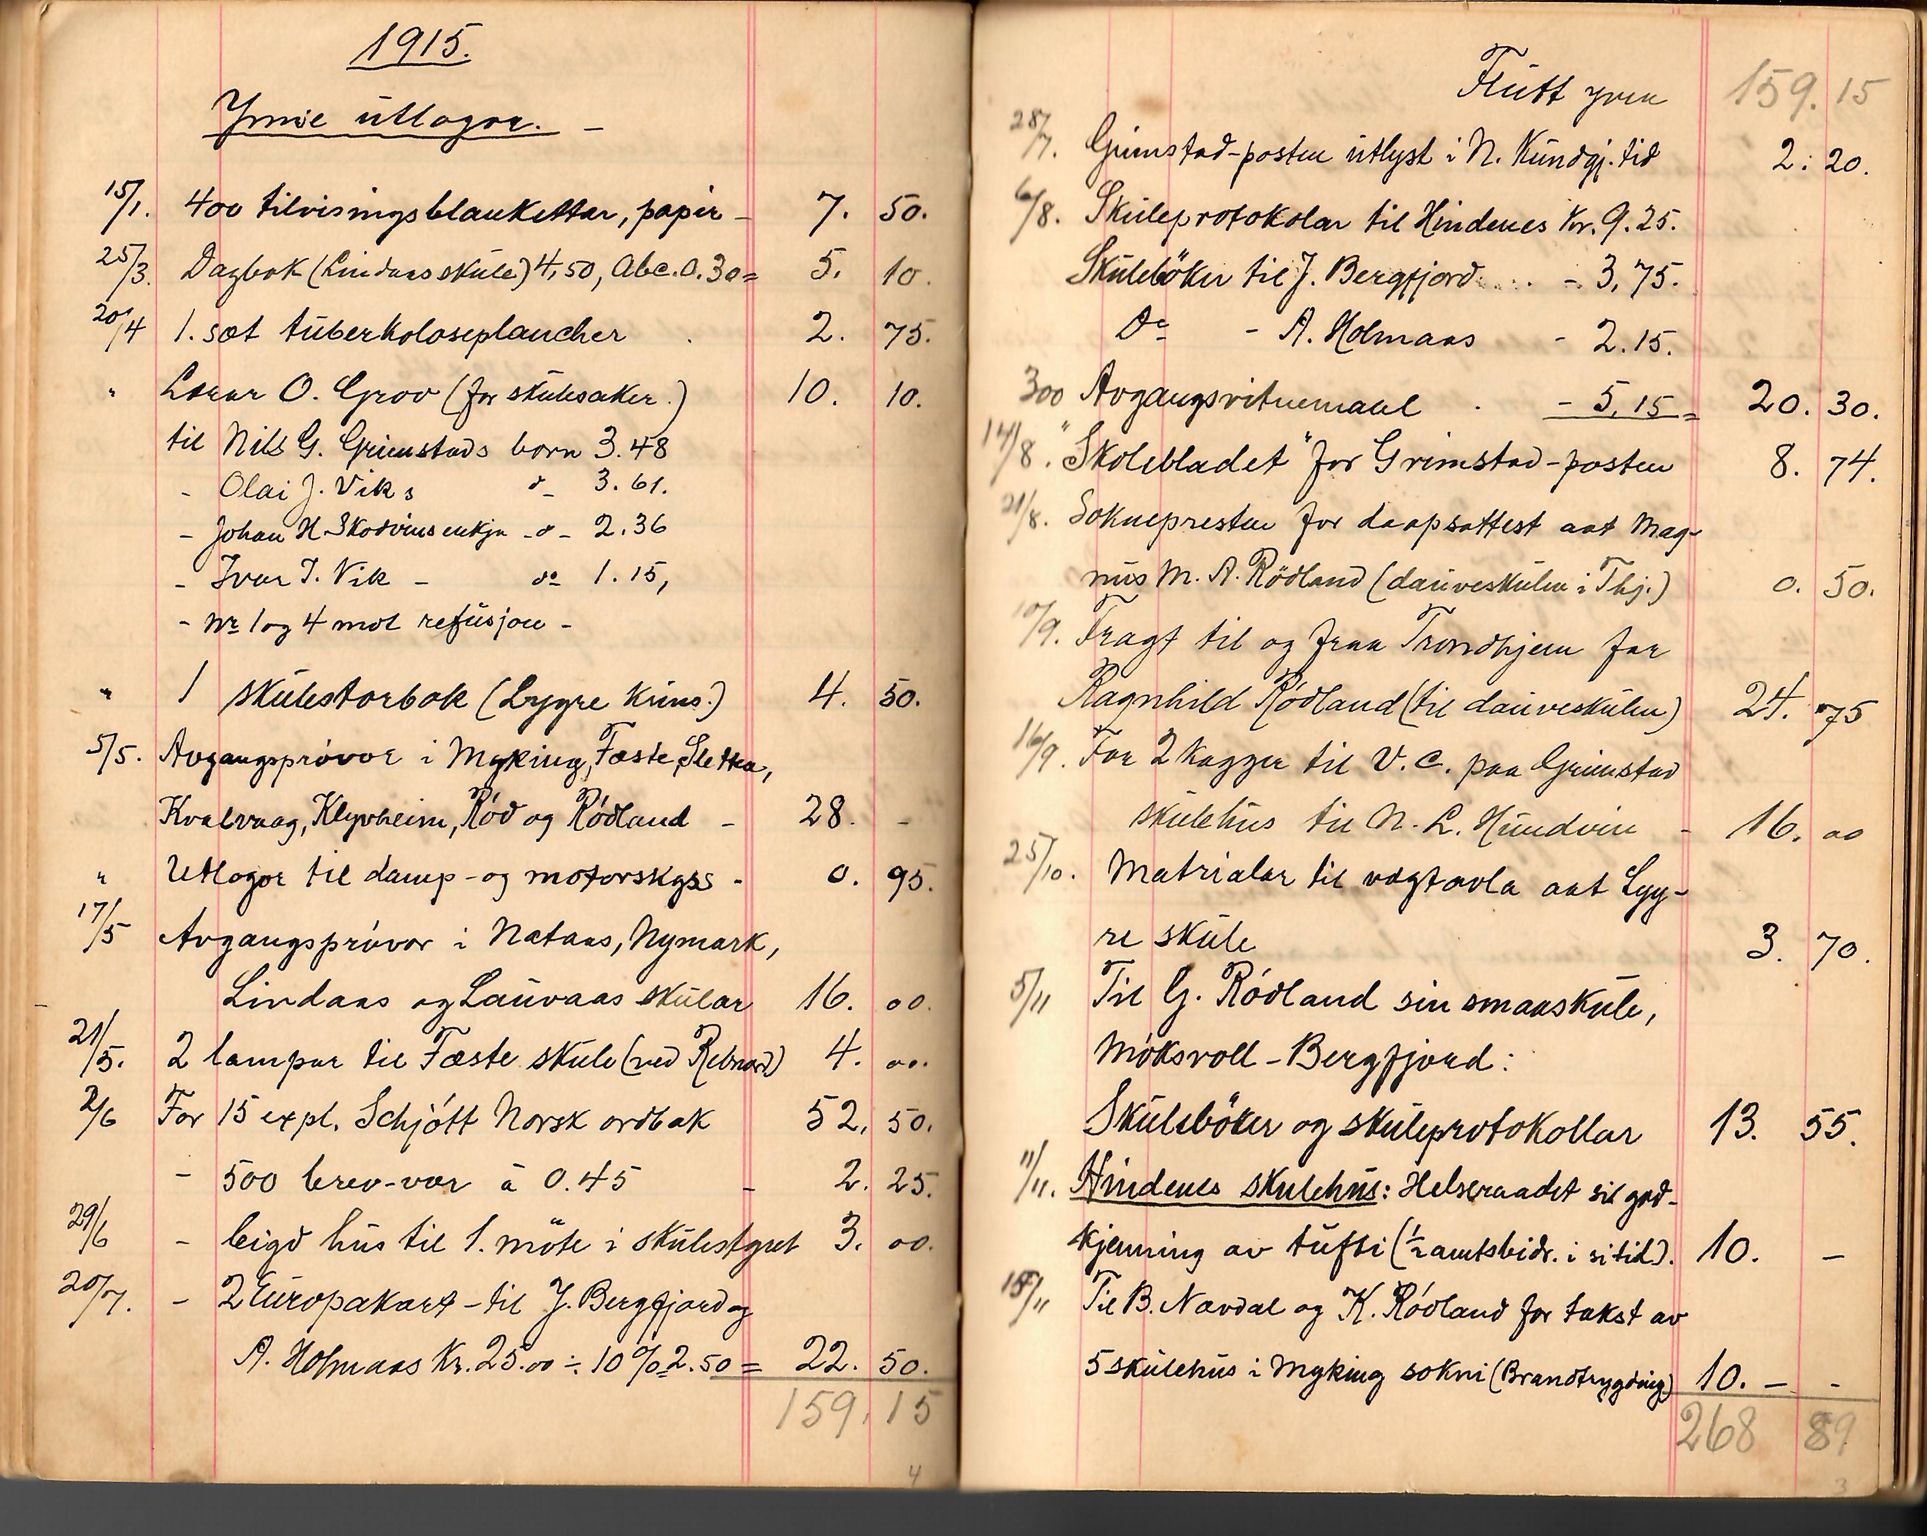 1915.
Ymse utlogor. -
15/1. 400 tilvisningsblankettar, papir - 7. 50.
25/3. Dagbok (Lindaas skule) 4,50, Abc. 0.30 = 5. 10.
20/4 1. sæt tuberkoloseplancher 2. 75.
" Lærar O. Grov (for skulesaker.) 10. 10.
til Nils G. Grimstads born 3.48
- Olai J. Viks do 3.61.
- Johan H. Skodvins enkja - do - 2.36
- Ivar I. Vik - do 1.15,
- Nr 1 og 4 mot refusjon -
" 1 skulestorbok (Lygre krins.) 4. 50.
5/5. Avgangsprøvor i Myking, Fæste, Sletta,
Kvalvaag, Klyvheim, Rød og Rødland - 28. -
" Utlogor til damp- og motorskyss - 0. 95.
17/5 Avgangsprøvor i Nataas, Nymark,
Lindaas og Lauvaas skular 16. 00.
21/5. 2 lampur til Fæste skule (ved Rebnord) 4. 00.
2/6 For 15 expl. Schjøtt Norsk ordbok 52. 50.
- 500 brev-vær á 0.45 - 2. 25.
29/6 - leigd hus til 1. möte i skulestyret 3. 00.
20/7. - 2 Europakart - til J. Bergfjord og
A. Holmaas Kr. 25.00 ÷ 10% = 2.50 = 22. 50.
159. 15
4
Flutt yver 159. 15
28/7. Grimstad-posten utlyst i N. Kundgj. tid 2. 20.
6/8. Skuleprotokolar til Hindenes Kr. 9.25.
Skuleböker til J. Bergfjord . . . - 3,75.
Do - A. Holmaas - 2.15.
300 Avgangsvitnemaal . - 5,15 = 20. 30.
14/8. "Skolebladet" for Grimstad-posten 8. 74.
21/8. Soknepresten for daapsattest aat Mag-
nus M. A. Rödland (dauveskulen i Thj.) 0. 50.
10/9. Fragt til og fraa Trondhjem for
Ragnhild Rødland (til dauveskulen) 24. 75
16/9. For 2 kagger til V. C. paa Grimstad
skulehus til N. L. Hundvin - 16. 00
25/10. Matrialar til vægtavla aat Lyg-
re skule 3. 70.
5/11 Til G. Rødland sin smaaskule,
Møksvoll - Bergfjord:
Skuleböker og skuleprotokollar 13. 55.
11/11. Hindenes skulehus: Helseraadet sil god-
kjenning av tufti (½ amtsbidr. i si tid). 10. -
18/11 Til B. Nævdal og K. Rødland for takst av
5 skulehus i Myking sokni (Brandtrygding) 10. - -
268 89
3